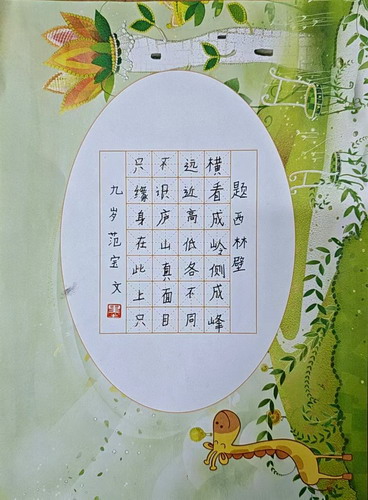 题西林壁
横看成岭侧成峰
远近高低各不同
不识庐山真面目
只缘身在此上只
九岁范宝文